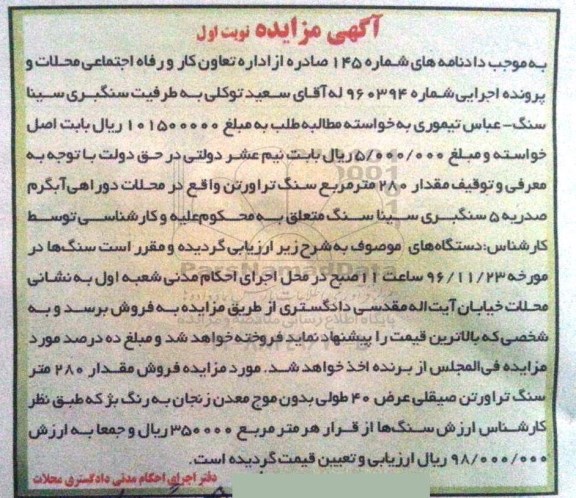 آگهی مزایده نوبت اول
به موجب دادنامه های شماره ۱۴۵ صادره از اداره تعاون کار و رفاه اجتماعی محلات و
پرونده اجرایی شماره ۹۶۰۳۹۴ له آقای سعید توکلی به طرفیت سنگبری سینا
سنگ-عباس تیموری به خواسته مطالبه طلب به مبلغ ۱۰۱۵۰۰۰۰۰ ریال بابت اصل
خواسته و مبلغ ۵/۰۰۰/۰۰۰ ریال بابت نیم عشر دولتی در حق دولت با توجه به
معرفی و توقیف مقدار ۲۸۰ متر مربع سنگ تراورتن واقع در محلات دوراهی آبگرم
صدریه ۵ سنگبری سینا سنگ متعلق به محکوم علیه و کارشناسی توسط
کارشناس: دستگاه های موصوف به شرح زیر ارزیابی گردیده و مقرر است سنگ ها در
مورخه ۹۶/۱۱/۲۳ ساعت ۱۱ صبح در محل اجرای احکام مدنی شعبه اول به نشانی
محلات خیابان آیت اله مقدسی دادگستری از طریق مزایده به فروش برسد و به
شخصی که بالاترین قیمت را پیشنهاد نماید فروخته خواهد شد و مبلغ ده درصد مورد
مزایده فی المجلس از برنده اخذ خواهد شد. مورد مزایده فروش مقدار ۲۸۰ متر
سنگ تراورتن صیقلی عرض ۴۰ طولی بدون موج معدن زنجان به رنگ بژ که طبق نظر
کارشناس ارزش سنگ ها از قرار هر متر مربع ۳۵۰۰۰۰ ریال و جمعا به ارزش
۹۸/۰۰۰/۰۰۰ ریال ارزیابی و تعیین قیمت گردیده است.
دفتر اجرای احکام مدنی دادگستری محلات
ParsNamadData
پایگاه اطلاع رسانی مناقصه و مزایده